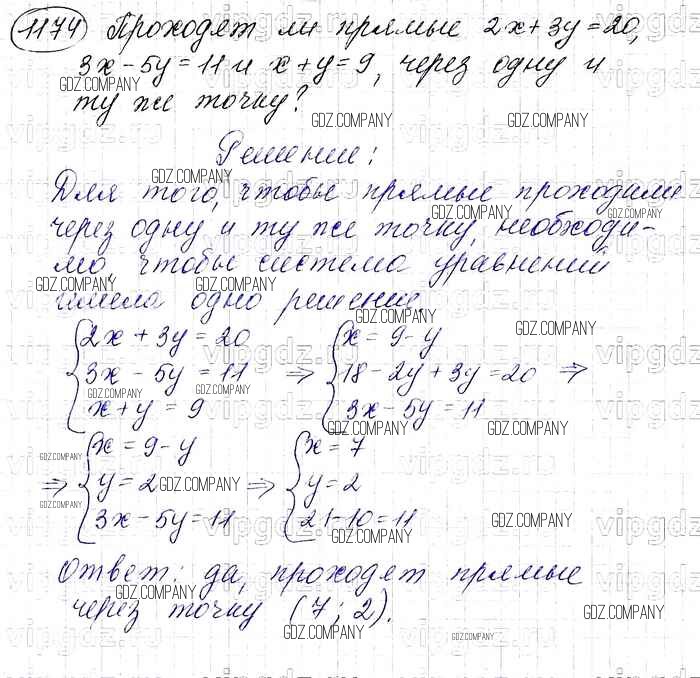 1174 Проходят ли прямые 2x+3y=20,
3x-5y=11 и x+y=9, через одну и
ту же точку?
Решение:
Для того, чтобы прямые проходили
через одну и ту же точку, необходи-
мо, чтобы система уравнений
имела одно решение
{2x+3y=20 {x=9-y
3x-5y=11 ⇒ 18-2y+3y=20 ⇒
x+y=9 3x-5y=11
{x=9-y {x=7
⇒ y=2 ⇒ y=2
3x-5y=11 21-10=11
Ответ: да, проходят прямые
через точку (7; 2).